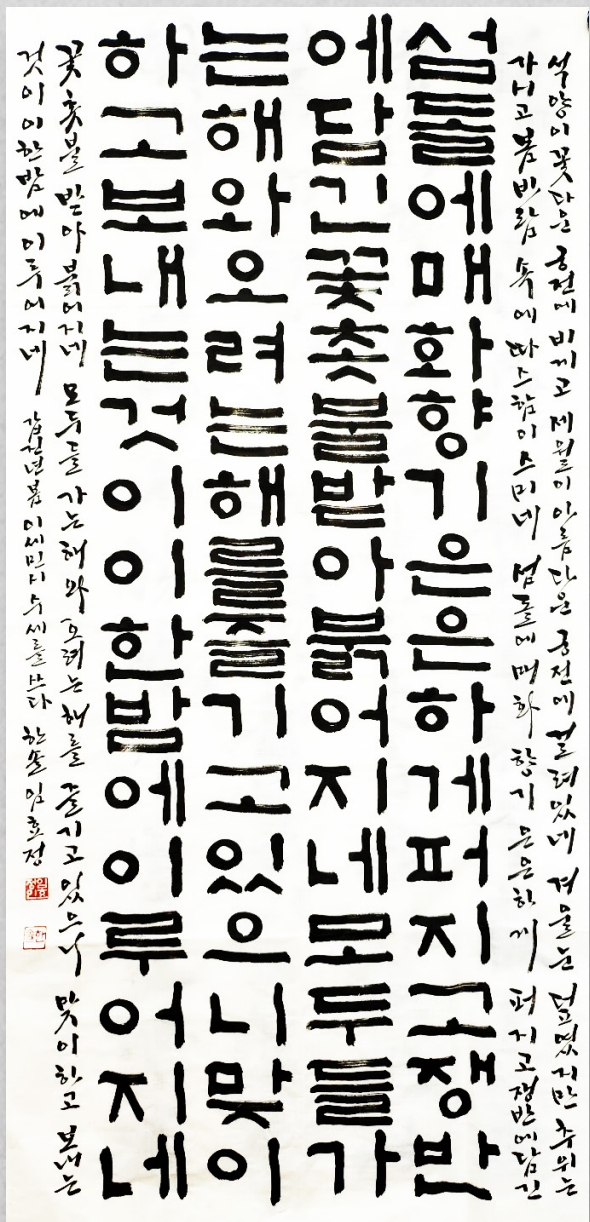 석양이 꽃다운 궁전에 비끼고 세월이 아름다운 궁전에 걸려있네 겨울눈 덮였지만 추위는
가시고 봄바람 속에 따스함이 스미네 섬돌에 매화 향기 은은하게 퍼지고 쟁반에 담긴
섬돌에매화향기은은하게퍼지고쟁반
에담긴꽃촛불받아붉어지네모두들가
는해와오려는해를즐기고있으니맞이
하고보내는것이이한밤에이루어지네
꽃촛불 받아 붉어지네 모두들 가는 해와 오려는 해를 즐기고 있으니 맞이하고 보내는
것이 이 한 밤에 이루어지네 갑진년 봄 이세민시 수세를 쓰다 한솔 임효정